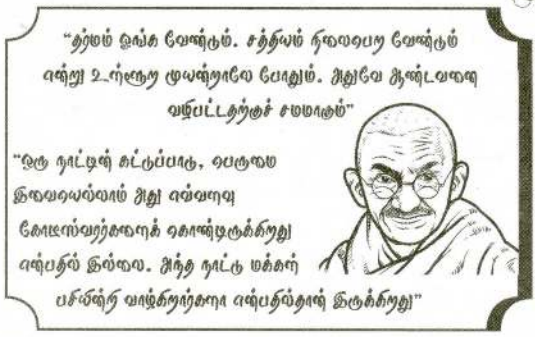 “தர்மம் ஓங்க வேண்டும். சத்தியம் நிலைபெற வேண்டும்
என்று உள்ளூற முயன்றாலே போதும். அதுவே ஆண்டவனை
வழிபட்டதற்குச் சமமாகும்”
“ஒரு நாட்டின் கட்டுப்பாடு, பெருமை
இவையெல்லாம் அது எவ்வளவு
கோடீஸ்வரர்களைக் கொண்டிருக்கிறது
என்பதில் இல்லை. அந்த நாட்டு மக்கள்
பசியின்றி வாழ்கிறார்களா என்பதில்தான் இருக்கிறது”